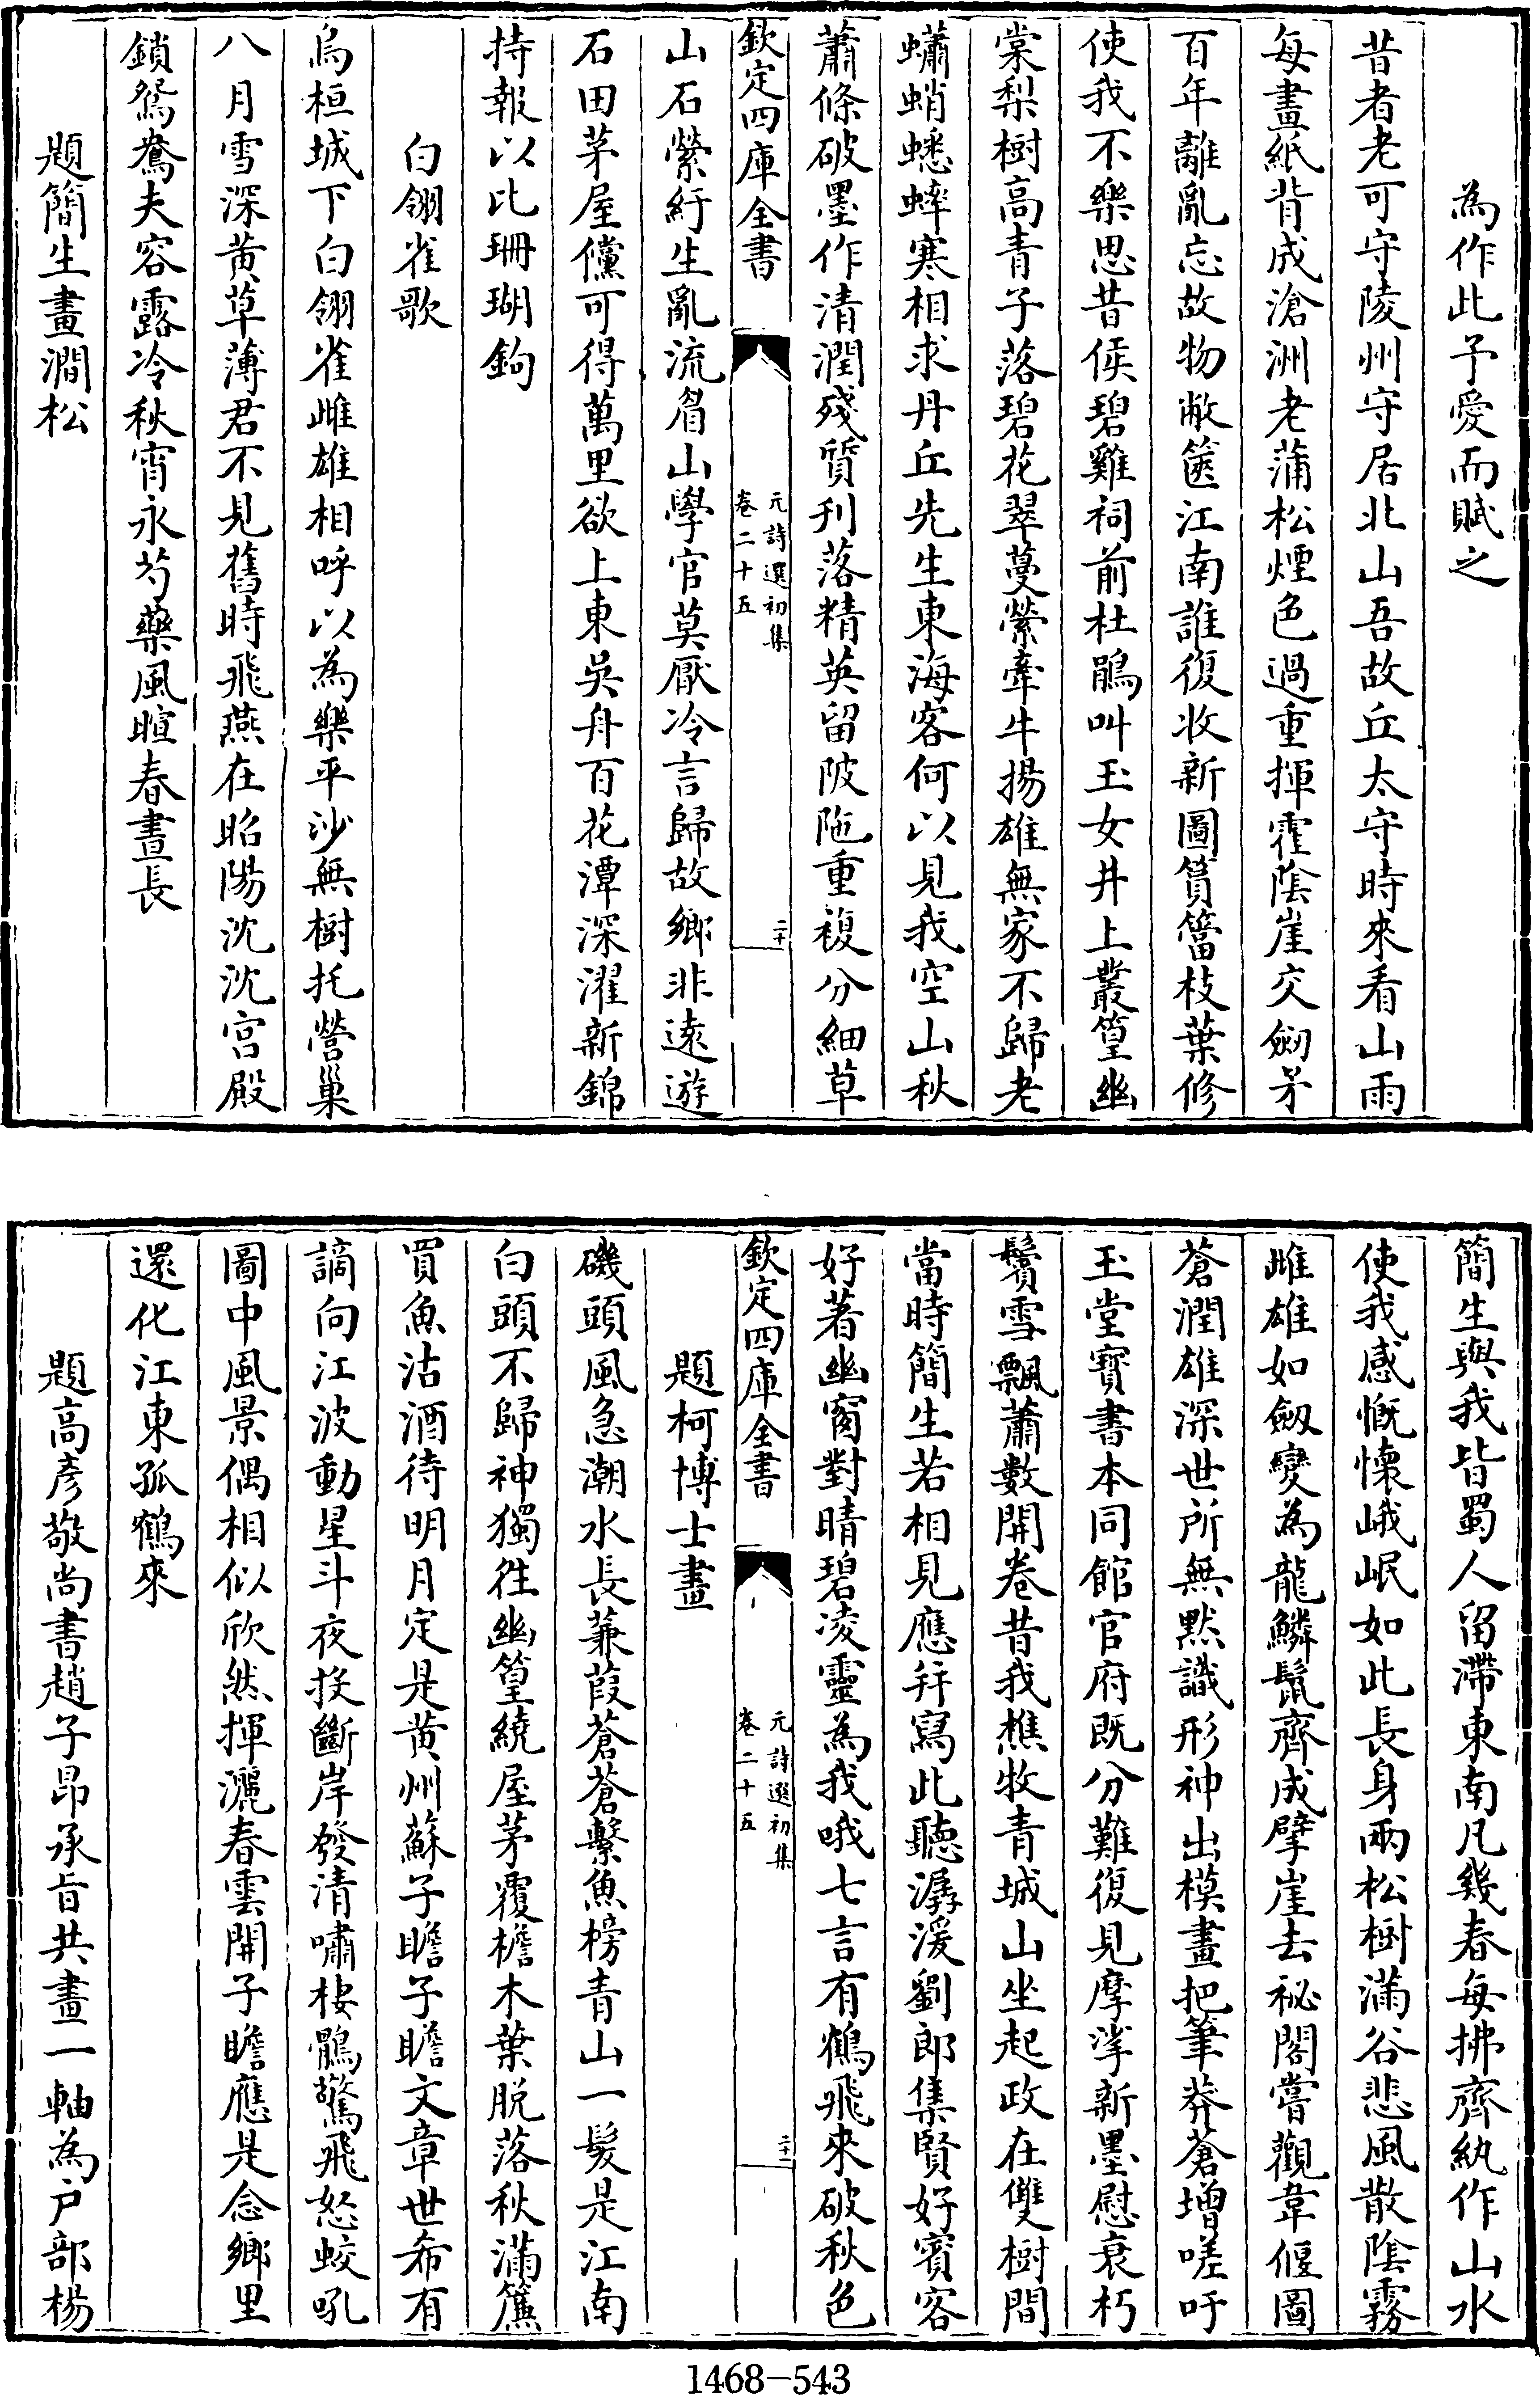 為作此予愛而賦之
昔者老可守陵州守居北山吾故丘太守時來看山雨
每畫紙背成滄洲老蒲松煙色過重揮霍陰崖交劒矛
百年離亂忘故物敝篋江南誰復收新圖篔簹枝葉修
使我不樂思昔侯碧雞祠前杜鵑叫玉女井上叢篁幽
棠梨樹高青子落碧花翠蔓縈牽牛揚雄無家不歸老
蠨蛸蟋蟀寒相求丹丘先生東海客何以見我空山秋
蕭條破墨作清潤殘質刋落精英留陂陁重複分細草
欽定四庫全書
元詩選初集
卷二十五
二十
山石縈紆生亂流眉山學官莫厭冷言歸故鄉非遠遊
石田茅屋儻可得萬里欲上東吳舟百花潭深濯新錦
持報以比珊瑚鉤
白翎雀歌
烏桓城下白翎雀雌雄相呼以為樂平沙無樹托營巢
八月雪深黄草薄君不見舊時飛燕在昭陽沈沈宫殿
鎖鴛鴦夫容露冷秋宵永芍藥風暄春晝長
題簡生畫澗松
簡生與我皆蜀人留滯東南凡幾春每拂齊紈作山水
使我感慨懷峨岷如此長身兩松樹滿谷悲風散陰霧
雌雄如劒變為龍鱗鬛齊成擘崖去秘閣嘗觀韋偃圖
蒼潤雄深世所無黙識形神出模畫把筆莽蒼增嗟吁
玉堂寳書本同館官府既分難復見摩挲新墨慰衰朽
鬢雪飄蕭數開卷昔我樵牧青城山坐起政在雙樹間
當時簡生若相見應并寫此聽潺湲劉郎集賢好賓客
好著幽窗對晴碧凌靈為我哦七言有鶴飛來破秋色
欽定四庫全書
元詩選初集
卷二十五
二十一
題柯博士畫
磯頭風急潮水長蒹葭蒼蒼繫魚榜青山一髪是江南
白頭不歸神獨徃幽篁繞屋茅覆檐木葉脫落秋滿簾
買魚沽酒待明月定是黄州蘇子瞻子瞻文章世希有
謫向江波動星斗夜投斷岸發清嘯棲鶻驚飛怒蛟吼
圖中風景偶相似欣然揮灑春雲開子瞻應是念鄉里
還化江東孤鶴來
題高彦敬尚書趙子昂承旨共畫一軸為户部楊
1468-543